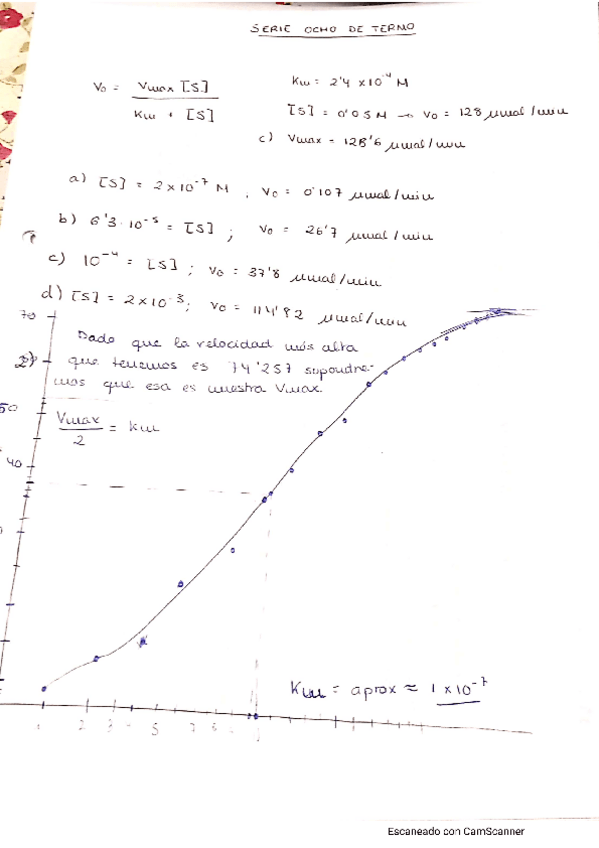 SERIE OCHO DE TERMO
V₀ = Vmax [S] / Km + [S]
Km = 2'4 × 10⁻⁴ M
[S] = 0'05 M → V₀ = 128 μmol/min
c) Vmax = 128'6 μmol/min
a) [S] = 2 × 10⁻⁷ M, V₀ = 0'107 μmol/min
b) 6'3·10⁻⁵ = [S]; V₀ = 26'7 μmol/min
c) 10⁻⁴ = [S]; V₀ = 37'8 μmol/min
d) [S] = 2 × 10⁻³; V₀ = 114'82 μmol/min
70
Dado que la velocidad más alta
2) que tenemos es 74'257 supondre-
mos que esa es nuestra Vmax.
50
Vmax / 2 = Km
40
Km = aprox ≈ 1 × 10⁻⁷
1 2 3 5 7
Escaneado con CamScanner